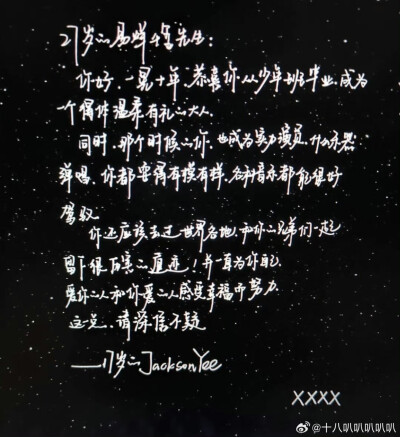 27岁的易烊千玺先生：
你好，一晃十年，恭喜你从少年班毕业，成为
一个偶像温柔有礼的大人
同时，那个时候的你，也成为实力演员，什么乐器
弹唱，你都耍得有模有样，各种音乐都能很好
驾驭
你还应该去过世界各地，和你的兄弟们一起
留下很厉害的足迹！并一直为你自己，
爱你的人和你爱的人感受幸福而努力
这点，请深信不疑
——17岁的Jackson Yee
XXXX
@十八叭叭叭叭叭